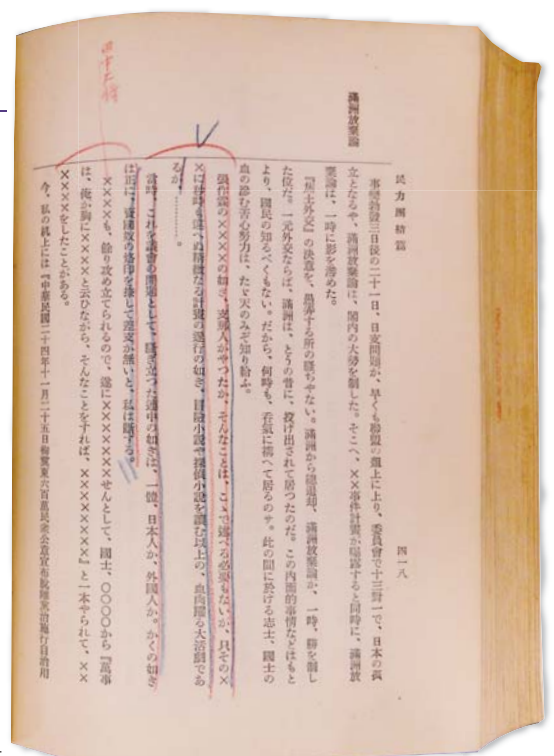 民力團結篇
四一八
滿洲放棄論
事變勃發三日後の二十一日、日支問題が、早くも聯盟の議上に上り、委員會で十三對一で、日本の孤
立となるや、滿洲放棄論は、閣內の大勢を制した。そこへ、××事件計畫が曝露すると同時に、滿洲放
棄論は、一時に影を潛めた。
『焦土外交』の決意を、愚弄する所の騷ぢやない。滿洲から總退却、滿洲放棄論が、一時、勝を制し
た位だ。一元外交ならば、滿洲は、とうの昔に、投げ出されて居つたのだ。この內面的事情などはもと
より、國民の知るべくもない。だから、何時も、呑氣に構へて居るのサ。此の間に於ける志士、國士の
血の滲む苦心努力は、たゞ天のみぞ知り給ふ。
張作霖の××××の如き、支那人がやつたか、そんなことは、こゝで述べる必要もないが、只その×
×に秒時も違へぬ精微なる計畫の遂行の如き、冒險小說や探偵小說を讀む以上の、血肉躍る大活劇であ
るが、…………。
當時、これを議會の問題として、騷ぎ立つた連中の如きは、一體、日本人か、外國人か。かくの如き
は正に、賣國奴の烙印を捺して差支が無いと、私は斷する。
××××も、餘り攻め立てられるので、遂に×××××××せんとして、國士、〇〇〇〇から『萬事
は、俺が胸に××××と云ひながら、そんなことをすれば、×××××××』と一本やられて、××
××××をしたことがある。
今、私の机上には『中華民國二十四年十一月二十五日